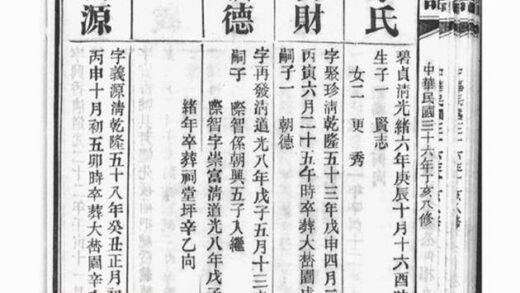 中華民國三十六年丁亥八修
氏
碧貞清光緒六年庚辰十月十六酉
生子一 賢志
女二 更 秀
財
字聚珍清乾隆五十三年戊申四月
丙寅六月二十五午時卒葬大園
嗣子一 朝德
德
字再發清道光八年戊子五月十三
嗣子 際智係朝興五子入繼
際智字崇富清道光八年戊子
緒年卒葬祠堂坪辛乙向
源
字義源清乾隆五十八年癸丑正月初
丙申十月初五卯時卒葬大園辛